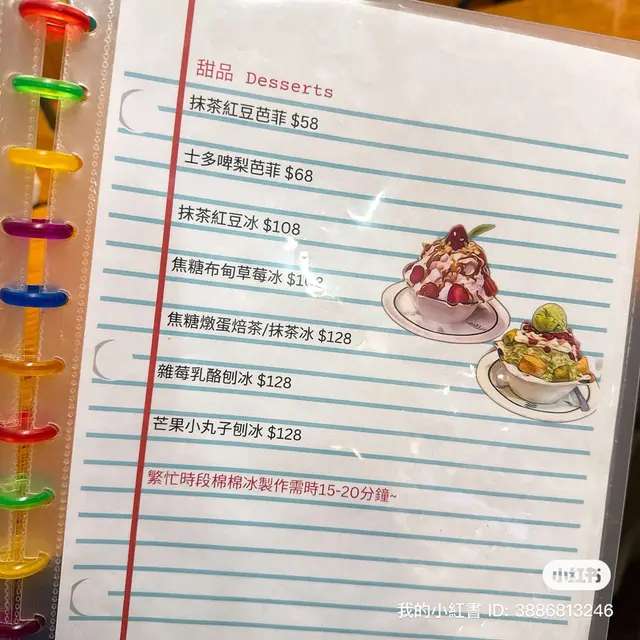 甜品 Desserts
抹茶紅豆芭菲 $58
士多啤梨芭菲 $68
抹茶紅豆冰 $108
焦糖布甸草莓冰
焦糖燉蛋焙茶/抹茶冰 $128
雜莓乳酪刨冰 $128
芒果小丸子刨冰 $128
繁忙時段棉棉冰製作需時15-20分鐘~
小红书
我的小紅書 ID: 3886813246